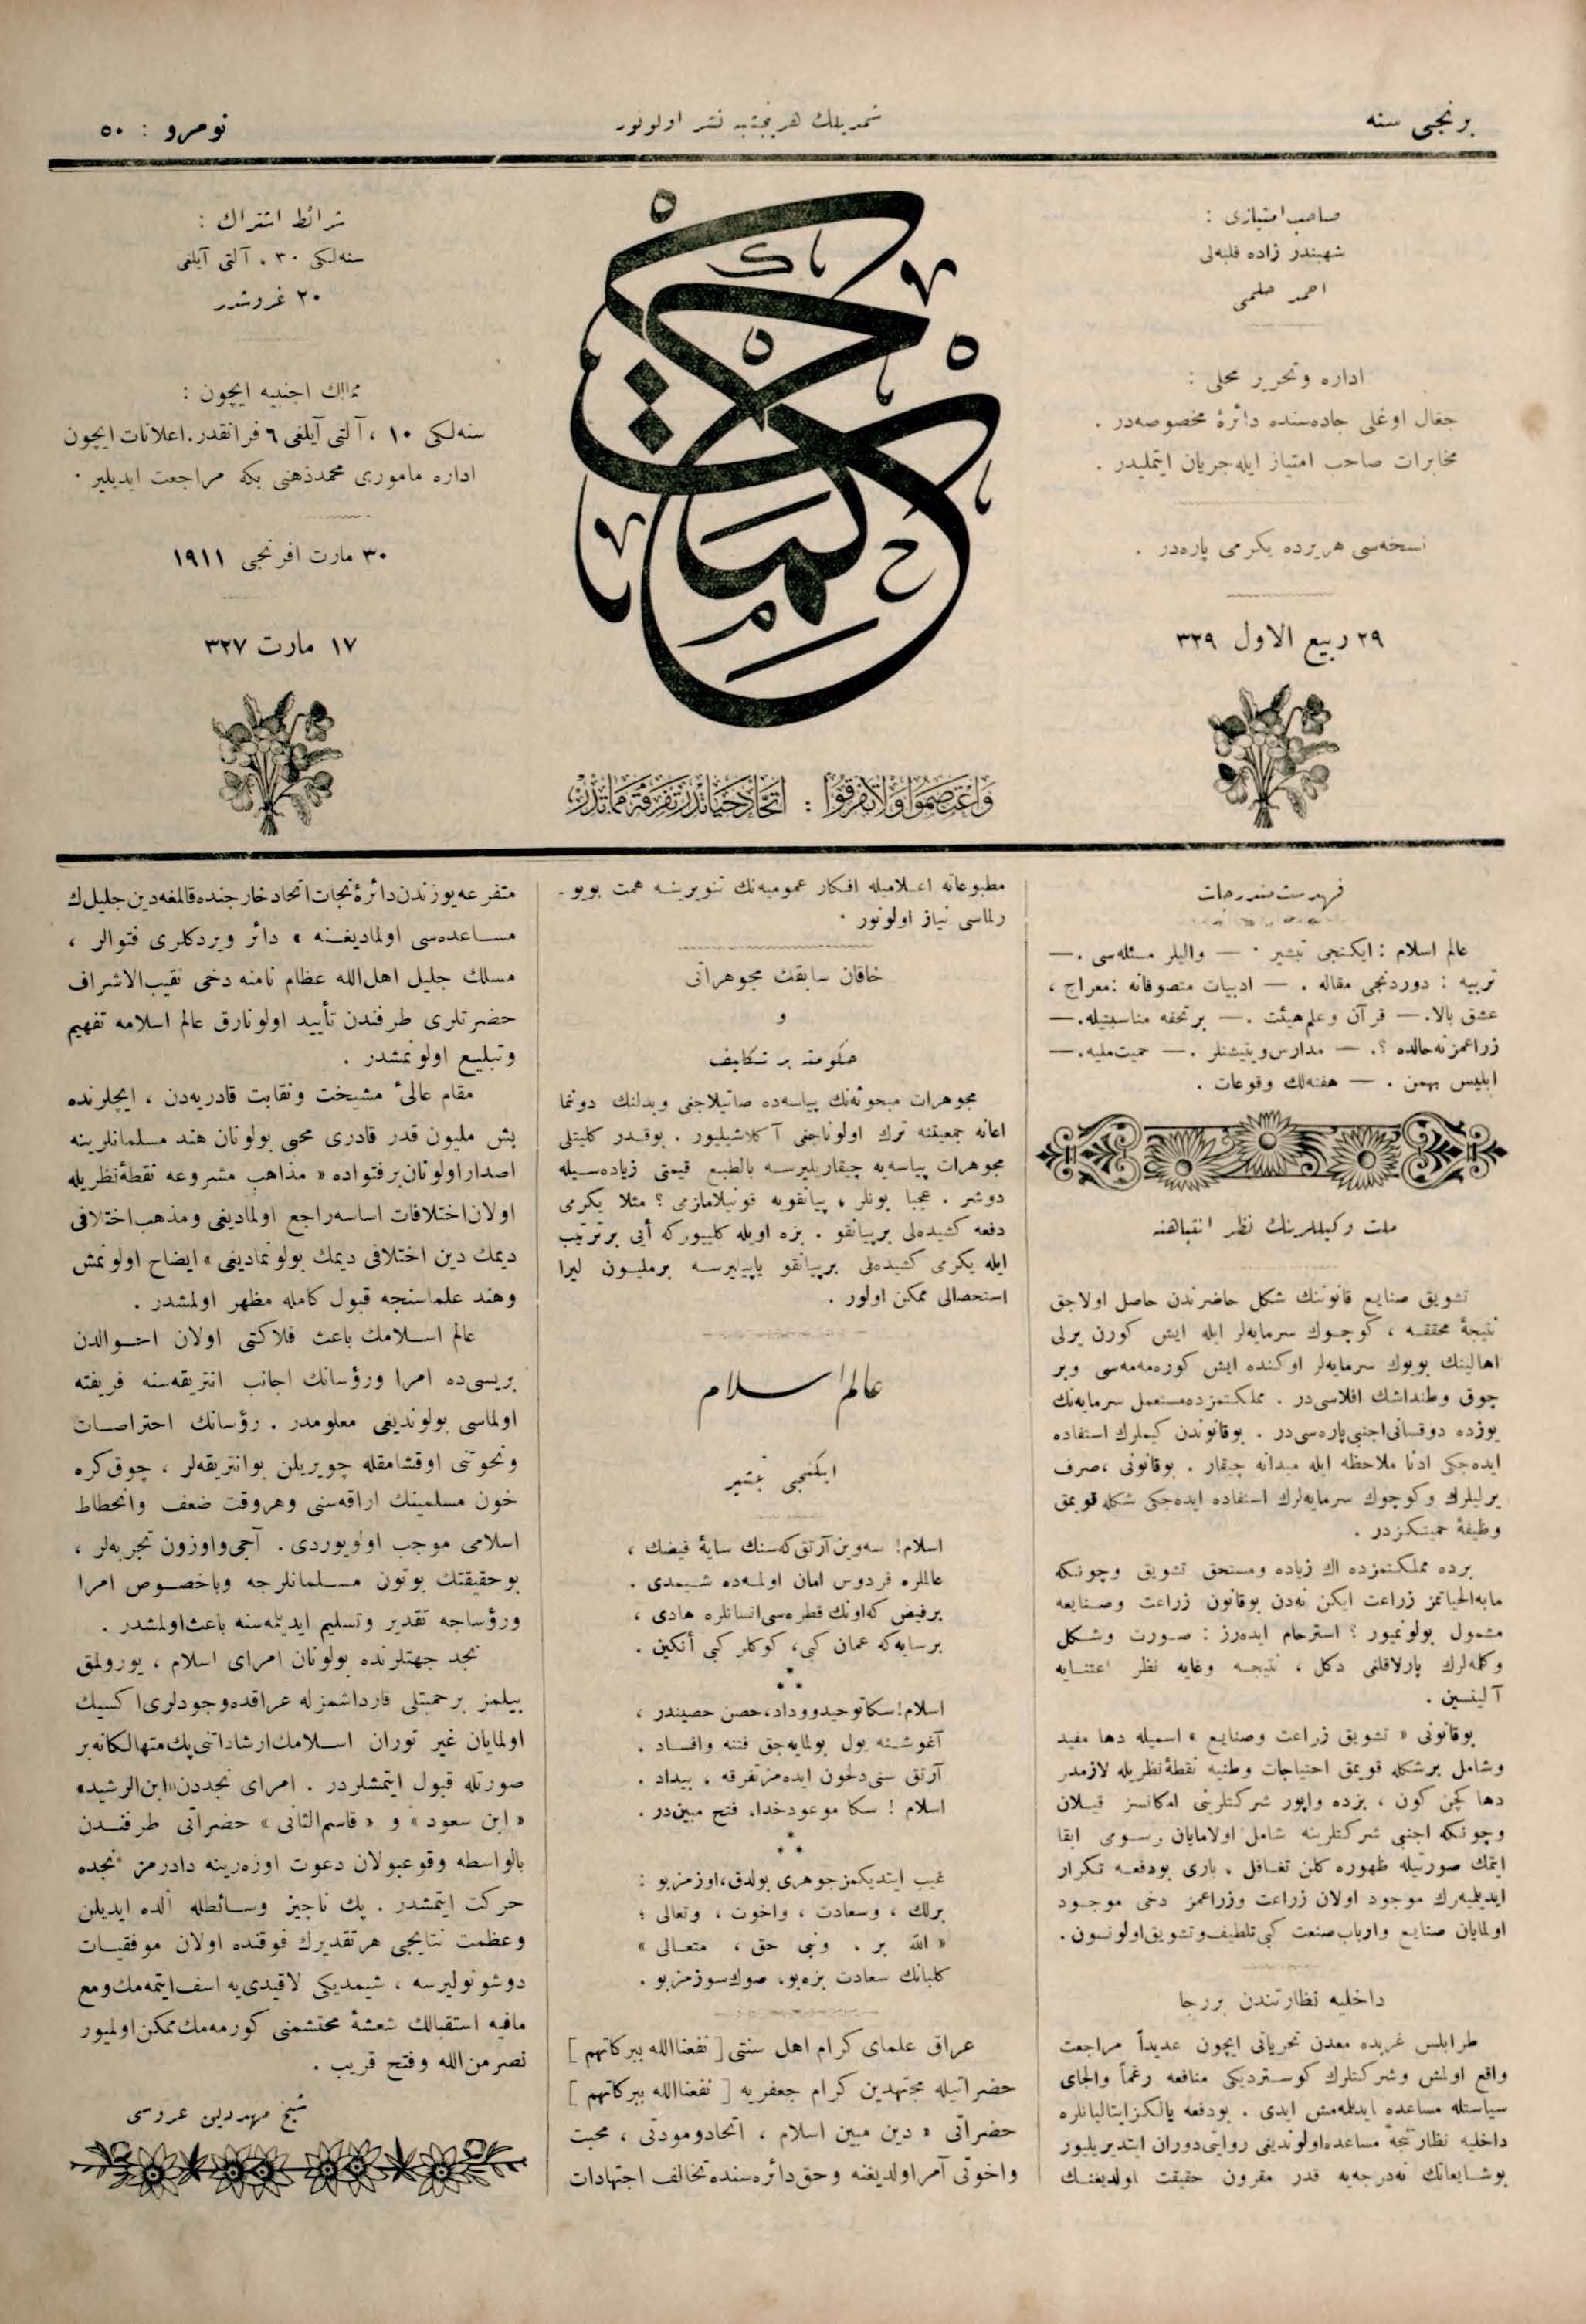 برنجی سنه
شمدیلك هر پنجشنبه نشر اولونور
نومرو : ٥٠
صاحب امتیازی :
شهبندر زاده فلبه‌لی
احمد حلمی
اداره وتحریر محلی :
جغال اوغلی جاده‌سنده دائرهٔ مخصوصه‌در .
مخابرات صاحب امتیاز ایله جریان ایتملیدر .
نسخه‌سی هریرده یكرمی پاره‌در .
٢٩ ربیع الاول ٣٢٩
حكمت
واعتصموا ولا تفرقوا : اتحاد حیاتدر تفرقه مماتدر
شرائط اشتراك :
سنه‌لكی ٣٠ ، آلتی آیلغی
٢٠ غروشدر
ممالك اجنبیه ایچون :
سنه‌لكی ١٠ ، آلتی آیلغی ٦ فرانقدر. اعلانات ایچون
اداره ماموری محمدذهنی بكه مراجعت ایدیلیر .
٣٠ مارت افرنجی ١٩١١
١٧ مارت ٣٢٧
فهرست مندرجات
عالم اسلام : ایكنجی تبشیر . — والیلر مسئله‌سی .—
تربیه : دوردنجی مقاله . — ادبیات متصوفانه : معراج ،
عشق بالا.— قرآن وعلم هیئت .— بر تحفه مناسبتیله.—
زراعمز نه حالده ؟. — مدارس ویتیشنلر .— حمیت ملیه.—
ابلیس بهمن . — هفته‌لك وقوعات .
ملت وكیللرینك نظر انتباهنه
تشویق صنایع قانوننك شكل حاضرندن حاصل اولاجق
نتیجهٔ محققه ، كوچوك سرمایه‌لر ایله ایش كورن یرلی
اهالینك بویوك سرمایه‌لر اوكنده ایش كوره‌مه‌مه‌سی وبر
چوق وطنداشك افلاسی‌در . مملكتمزده مستعمل سرمایه‌نك
یوزده دوقسانی اجنبی پاره‌سی‌در . بوقانوندن كیملرك استفاده
ایده‌جكی ادنا ملاحظه ایله میدانه چیقار . بوقانونی ، صرف
یرلیلرك وكوچوك سرمایه‌لرك استفاده ایده‌جكی شكله قویمق
وظیفهٔ حمیتكزدر .
برده مملكتمزده اك زیاده ومستحق تشویق وچونكه
مابه‌الحیاتمز زراعت ایكن نه‌دن بوقانون زراعت وصنایعه
مشمول بولونمیور ؟ استرحام ایده‌رز : صورت وشكل
وكله‌لرك پارلاقلغی دكل ، نتیجه وغایه نظر اعتنایه
آلینسین .
بوقانونی « تشویق زراعت وصنایع » اسمیله دها مفید
وشامل برشكله قویمق احتیاجات وطنیه نقطهٔ نظریله لازمدر
دها كچن كون ، بزده واپور شركتلرینی امكانسز قیلان
وچونكه اجنبی شركتلرینه شامل اولامایان رسومی ابقا
ایتمك صورتیله ظهوره كلن تغافل ، باری بودفعه تكرار
ایدیلمیه‌رك موجود اولان زراعت وزراعمز دخی موجود
اولمایان صنایع وارباب صنعت كبی تلطیف وتشویق اولونسون.
داخلیه نظارتندن بررجا
طرابلس غربده معدن تحریاتی ایچون عدیداً مراجعت
واقع اولمش وشركتلرك كوستردیكی منافعه رغماً والجای
سیاستله مساعده ایدیلمه‌مش ایدی . بودفعه یالكز ایتالیانلره
داخلیه نظارتنجه مساعده اولوندیغی روایتی دوران ایتدیریلیور
بوشایعاتك نه‌درجه‌یه قدر مقرون حقیقت اولدیغنك
مطبوعاته اعلامیله افكار عمومیه‌نك تنویرینه همت بویو-
رلماسی نیاز اولونور .
خاقان سابقك مجوهراتی
و
حكومته بر تكلیف
مجوهرات مبحوثه‌نك پیاسه‌ده صاتیلاجغی وبدلنك دوننما
اعانه جمعیتنه ترك اولوناجغی آكلاشیلیور . بوقدر كلیتلی
مجوهرات پیاسه‌یه چیقاریلیرسه بالطبع قیمتی زیاده‌سیله
دوشر . عجبا بونلر ، پیانقویه قونیلامازمی ؟ مثلا یكرمی
دفعه كشیده‌لی برپیانقو . بزه اویله كلییوركه أیی بر ترتیب
ایله یكرمی كشیده‌لی برپیانقو یاپیلیرسه برملیون لیرا
استحصالی ممكن اولور .
عالم اسلام
ایكنجی تبشیر
اسلام! سه‌وین آرتق كه سنك سایهٔ فیضك ،
عالملره فردوس امان اولمه‌ده شیمدی .
برفیض كه اونك قطره‌سی انسانلره هادی ،
برسایه كه عمان كبی، كوكلر كبی أنگین .
* * *
اسلام! سكا توحیدووداد، حصن حصیندر ،
آغوشنه یول بولمایه‌جق فتنه وافساد .
آرتق سنی دلخون ایده‌مز تفرقه ، بیداد .
اسلام ! سكا موعود خدا، فتح مبین‌در .
* * *
غیب ایتدیكمز جوهری بولدق، اوزمز بو :
برلك ، وسعادت ، واخوت ، وتعالی ؛
« الله بر . ونبی حق ، متعالی »
كلبانك سعادت بزه بو، صوك سوزمز بو .
عراق علمای كرام اهل سنتی [ نفعناالله ببركاتهم ]
حضراتیله مجتهدین كرام جعفریه [ نفعناالله ببركاتهم ]
حضراتی « دین مبین اسلام ، اتحادومودتی ، محبت
واخوتی آمر اولدیغنه وحق دائره‌سنده تخالف اجتهادات
متفرعه یوزندن دائرهٔ نجات اتحاد خارجنده قالمغه دین جلیلك
مساعده‌سی اولمادیغنه » دائر ویردكلری فتوالر ،
مسلك جلیل اهل‌الله عظام نامنه دخی نقیب‌الاشراف
حضرتلری طرفندن تأیید اولونارق عالم اسلامه تفهیم
وتبلیغ اولونمشدر .
مقام عالیٔ مشیخت ونقابت قادریه‌دن ، ایچلرنده
بش ملیون قدر قادری محبی بولونان هند مسلمانلرینه
اصدار اولونان برفتواده « مذاهب مشروعه نقطهٔ نظریله
اولان اختلافات اساسه راجع اولمادیغی ومذهب اختلافی
دیمك دین اختلافی دیمك بولونمادیغی » ایضاح اولونمش
وهند علماسنجه قبول كامله مظهر اولمشدر .
عالم اسلامك باعث فلاكتی اولان احوالدن
بریسی‌ده امرا ورؤسانك اجانب انتریقه‌سنه فریفته
اولماسی بولوندیغی معلومدر . رؤسانك احتراصات
ونخوتنی اوقشامقله چویریلن بوانتریقه‌لر ، چوق كره
خون مسلمینك اراقه‌سنی وهروقت ضعف وانحطاط
اسلامی موجب اولویوردی . آجی واوزون تجربه‌لر ،
بوحقیقتك بوتون مسلمانلرجه وباخصوص امرا
ورؤساجه تقدیر وتسلیم ایدیلمه‌سنه باعث اولمشدر .
نجد جهتلرنده بولونان امرای اسلام ، یورولمق
بیلمز برحمیتلی قارداشمزله عراقده وجودلری اكسیك
اولمایان غیر توران اسلامك ارشاداتنی پك متهالكانه بر
صورتله قبول ایتمشلردر . امرای نجددن «ابن الرشید»
« ابن سعود » و « قاسم الثانی » حضراتی طرفندن
بالواسطه وقوعبولان دعوت اوزه‌رینه دادرمز نجده
حركت ایتمشدر . پك ناچیز وسائطله ألده ایدیلن
وعظمت نتایجی هرتقدیرك فوقنده اولان موفقیات
دوشونولیرسه ، شیمدیكی لاقیدی‌یه اسف ایتمه‌مك ومع
مافیه استقبالك شعشعهٔ محتشمنی كورمه‌مك ممكن اولمیور
نصر من الله وفتح قریب .
شیخ مهردین عروسی